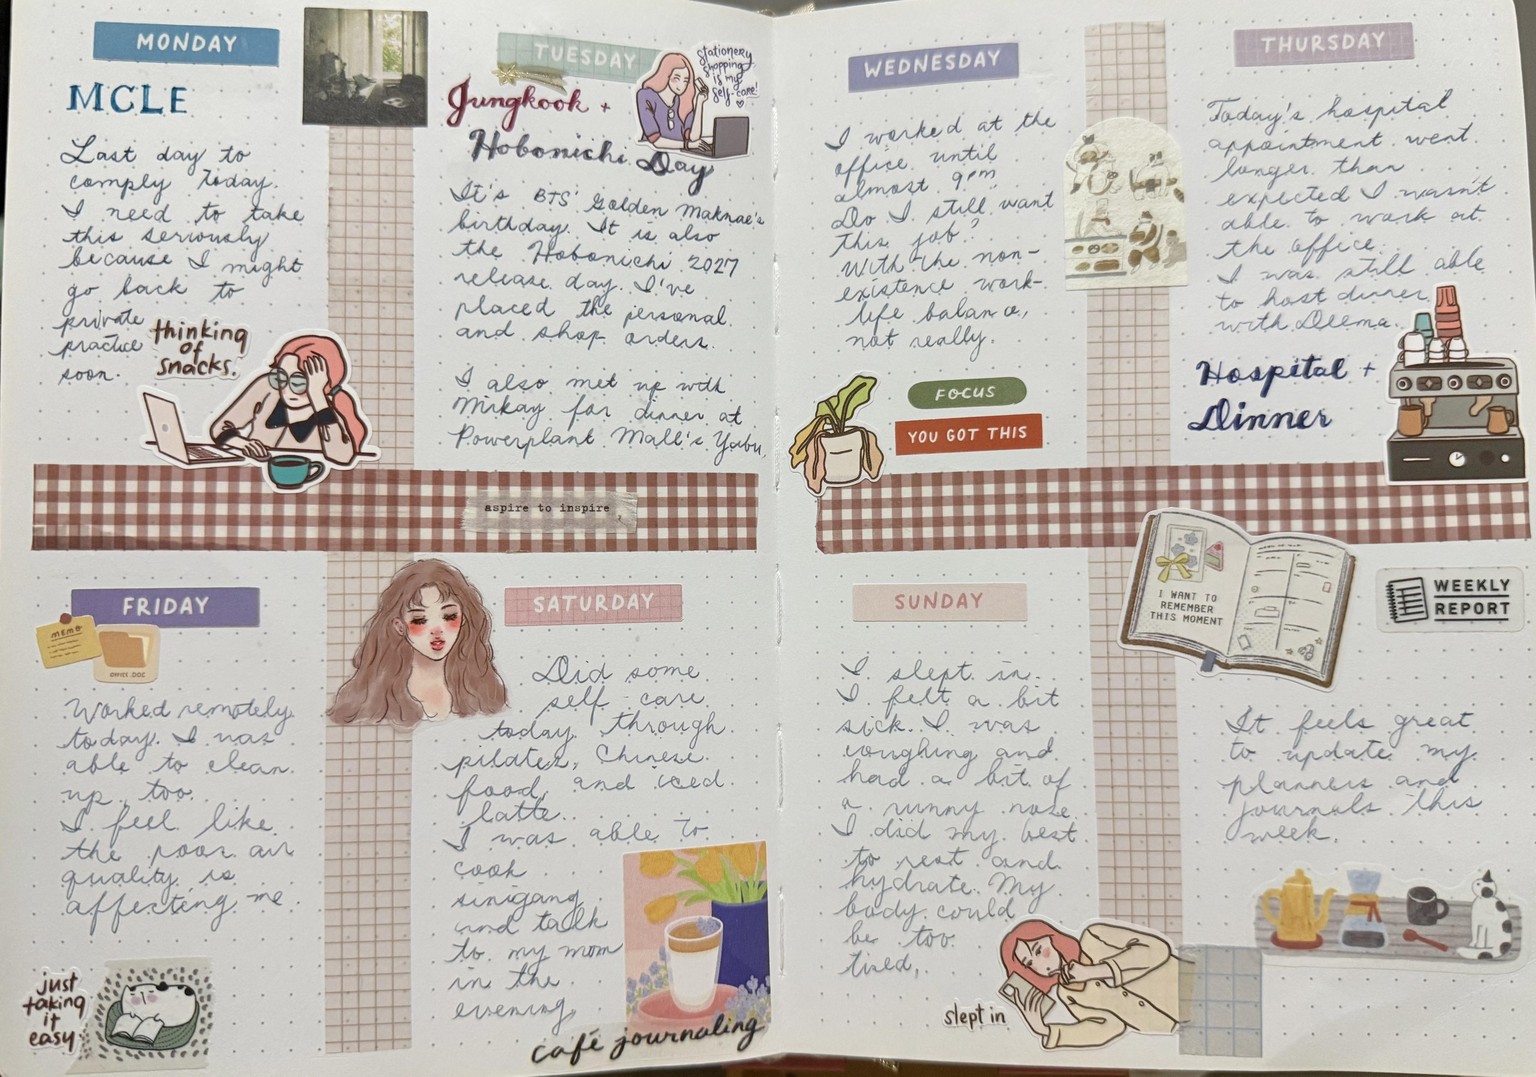 MONDAY
MCLE
Last day to
comply today.
I need to take
this seriously
because I might
go back to
private
practice
soon.
thinking
of
snacks.
TUESDAY
stationery
shopping
is my
self-care!
Jungkook +
Hobonichi Day
It's BTS' Golden Maknae's
birthday. It is also
the Hobonichi 2027
release day. I've
placed the personal
and shop orders.
I also met up with
Mikay for dinner at
Powerplant Mall's Yabu.
aspire to inspire
WEDNESDAY
I worked at the
office until
almost 9pm
Do I still want
this job?
With the non-
existence work-
life balance,
not really.
FOCUS
YOU GOT THIS
THURSDAY
Today's hospital
appointment went
longer than
expected I wasn't
able to work at
the office.
I was still able
to host dinner
with Deema.
Hospital +
Dinner
FRIDAY
MEMO
OFFICE.DOC
Worked remotely
today. I was
able to clean
up too.
I feel like
the poor air
quality is
affecting me.
just
taking
it
easy
SATURDAY
Did some
self care
today through
pilates, Chinese
food, and iced
latte.
I was able to
cook
sinigang
and talk
to my mom
in the
evening.
café journaling
SUNDAY
I slept in.
I felt a bit
sick. I was
coughing and
had a bit of
a runny nose.
I did my best
to rest and
hydrate. My
body could
be too
tired.
slept in
I WANT TO
REMEMBER
THIS MOMENT
WEEKLY
REPORT
It feels great
to update my
planners and
journals this
week.